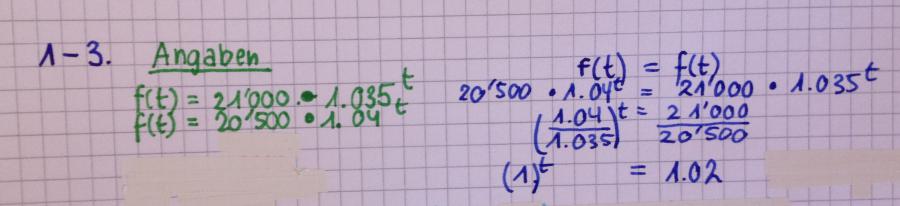 1-3. Angaben
f(t) = 21'000 • 1.035^t
f(t) = 20'500 • 1.04^t
f(t) = f(t)
20'500 • 1.04^t = 21'000 • 1.035^t
(1.04/1.035)^t = 21'000/20'500
(1)^t = 1.02